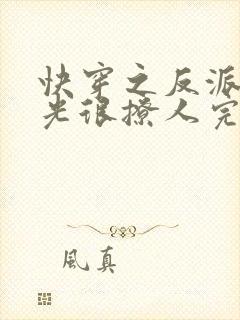 快穿之反派
光很撩人完
風真